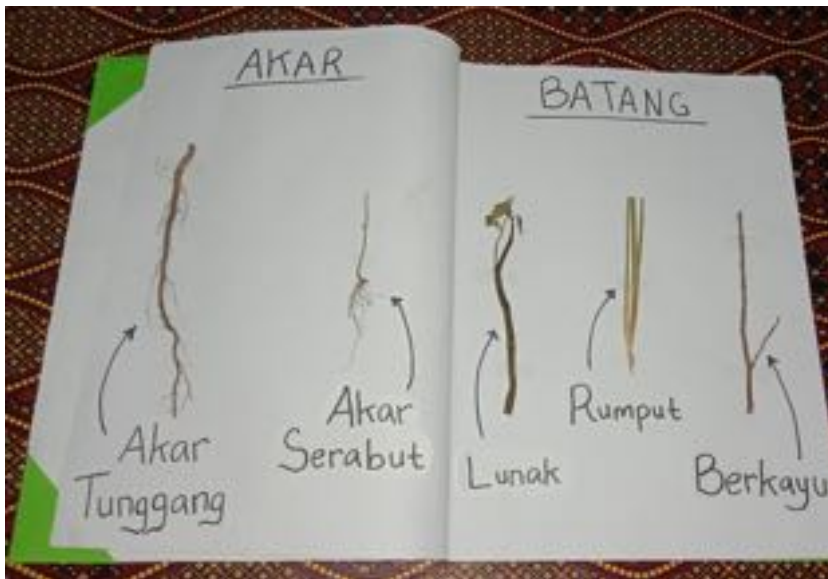 AKAR
Akar
Tunggang
Akar
Serabut
BATANG
Lunak
Rumput
Berkayu